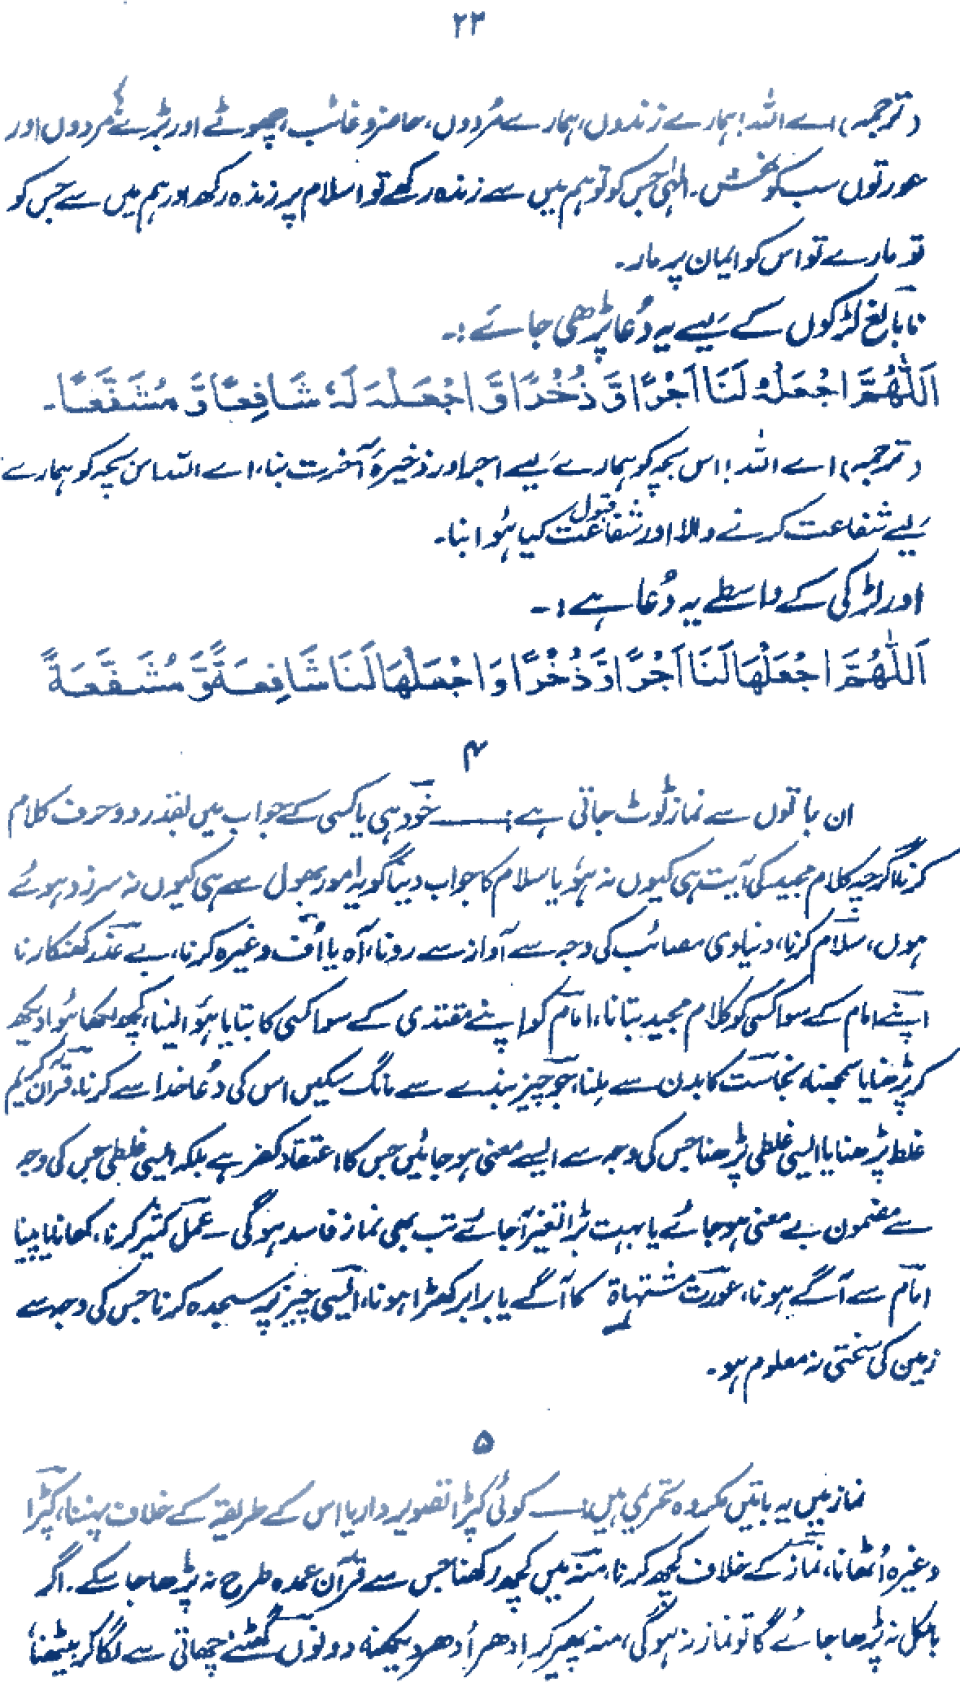 ۲۳
(ترجمہ) اے اللہ! ہمارے زندوں، ہمارے مُردوں، حاضر و غائب، چھوٹے اور بڑے مردوں اور
عورتوں سب کو بخش۔ الٰہی جس کو تو ہم میں سے زندہ رکھے تو اسلام پر زندہ رکھ اور ہم میں سے جس کو
تو مارے تو اس کو ایمان پر مار۔
نابالغ لڑکوں کے لیے یہ دُعا پڑھی جائے :۔
اَللّٰهُمَّ اجْعَلْهُ لَنَا اَجْرًا وَّ ذُخْرًا وَّ اجْعَلْهُ لَهٗ شَافِعًا وَّ مُشَفَّعًا۔
(ترجمہ) اے اللہ! اس بچہ کو ہمارے لیے اجر اور ذخیرۂ آخرت بنا، اے اللہ اس بچہ کو ہمارے
لیے شفاعت کرنے والا اور شفاعت قبول کیا ہُوا بنا۔
اور لڑکی کے واسطے یہ دُعا ہے :۔
اَللّٰهُمَّ اجْعَلْهَا لَنَا اَجْرًا وَّ ذُخْرًا وَ اجْعَلْهَا لَنَا شَافِعَةً وَّ مُشَفَّعَةً
۴
ان باتوں سے نماز ٹوٹ جاتی ہے :۔ خود ہی یا کسی کے جواب میں بقدر دو حرف کلام
کرنا گرچہ کلام مجید کی آیت ہی کیوں نہ ہو، یا سلام کا جواب دینا گو یہ امور بھول سے ہی کیوں نہ سرزد ہوئے
ہوں، سلام کرنا، دنیاوی مصائب کی وجہ سے آواز سے رونا، آہ یا اُف وغیرہ کرنا، بے عذر کھنکارنا
اپنے امام کے سوا کسی کو کلام مجید بتانا، امام کو اپنے مقتدی کے سوا کسی کا بتایا ہُوا لینا، کچھ لکھا ہُوا دیکھ
کر پڑھنا یا سمجھنا، نجاست کا بدن سے ملنا، جو چیز بندے سے مانگ سکیں اس کی دُعا خدا سے کرنا، قرآن کریم
غلط پڑھنا یا ایسی غلطی پڑھنا جس کی وجہ سے ایسے معنی ہو جائیں جس کا اعتقاد کفر ہے بلکہ ایسی غلطی جس کی وجہ
سے مضمون بے معنی ہو جائے یا بہت بڑا تغیر آ جائے تب بھی نماز فاسد ہو گی۔ عمل کثیر کرنا، کھانا یا پینا
امام سے آگے ہونا، عورت مشتہاۃ کا آگے یا برابر کھڑا ہونا، ایسی چیز پر سجدہ کرنا جس کی وجہ سے
زمین کی سختی نہ معلوم ہو۔
۵
نماز میں یہ باتیں مکروہ تحریمی ہیں :۔ کوئی کپڑا تصویر دار یا اس کے طریقہ کے خلاف پہننا، کپڑا
وغیرہ اُٹھانا، نماز کے خلاف کچھ کرنا، منہ میں کچھ رکھنا جس سے قرآن عمدہ طرح نہ پڑھا جا سکے۔ اگر
بالکل نہ پڑھا جائے گا تو نماز نہ ہو گی، منہ پھیر کر اِدھر اُدھر دیکھنا، دونوں گھٹنے چھاتی سے لگا کر بیٹھنا،